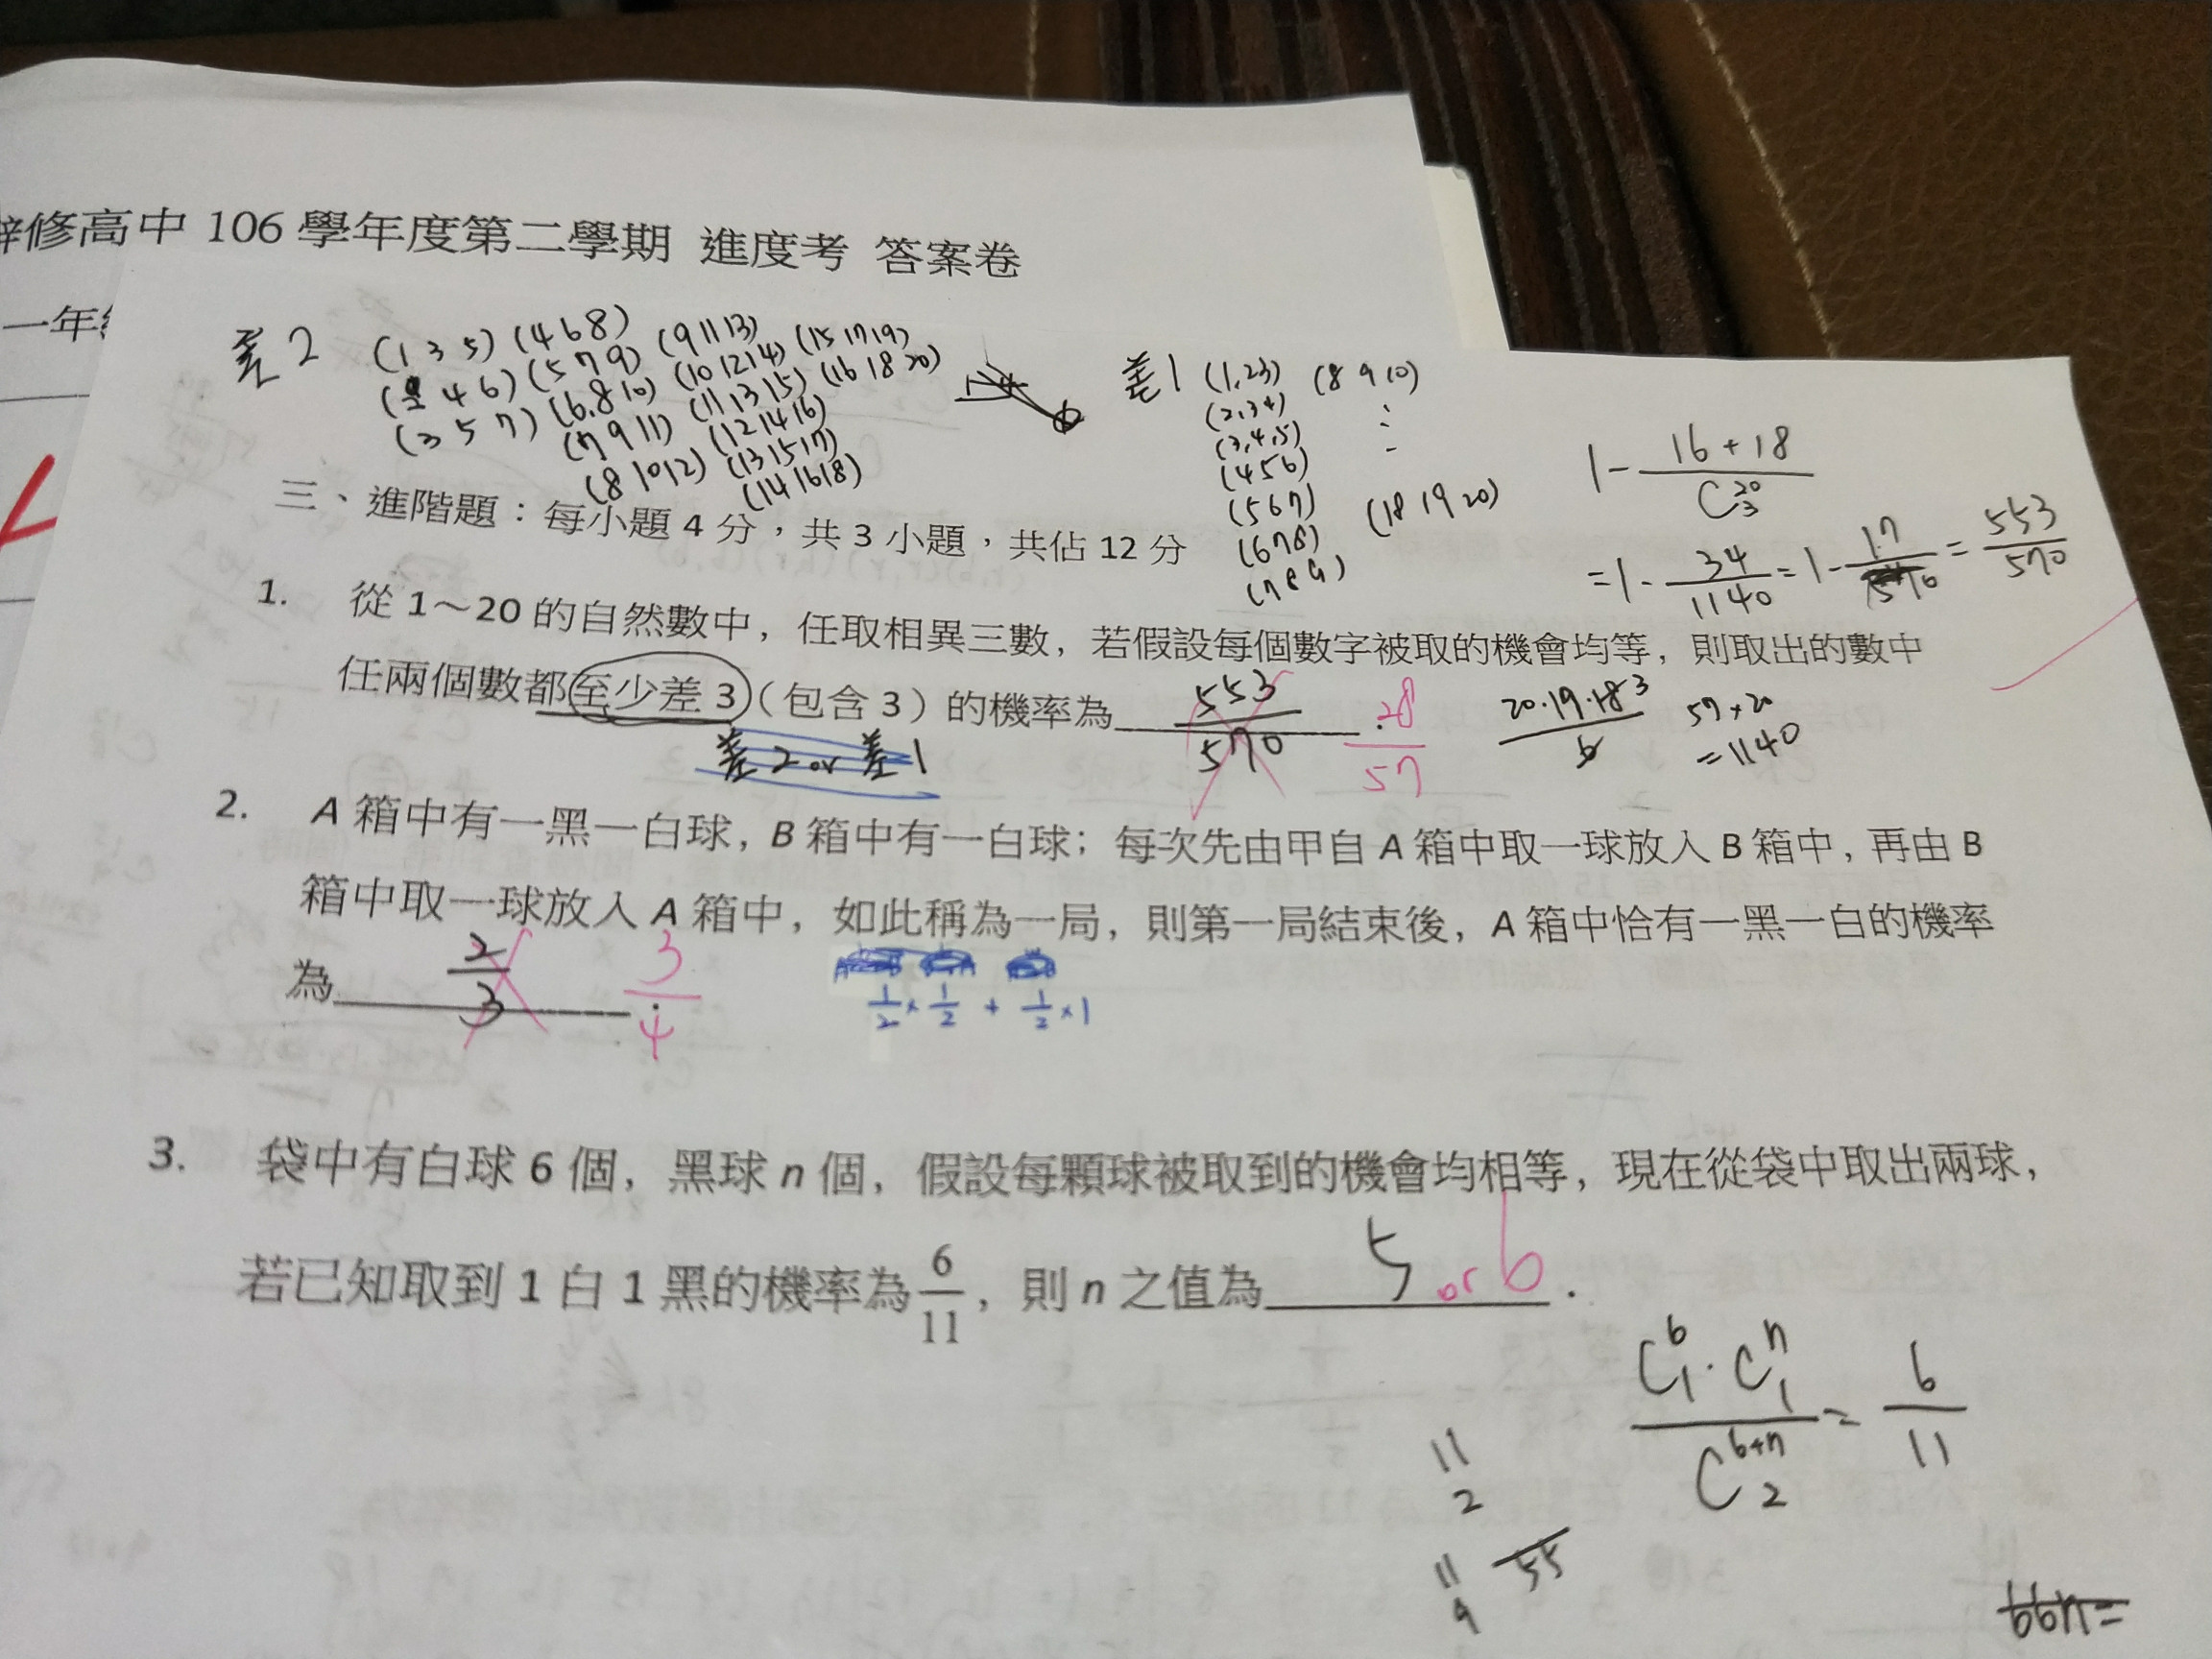 辭修高中 106 學年度第二學期 進度考 答案卷
一年
差2 (1 3 5) (4 6 8) (9 11 13) (15 17 19)
(2 4 6) (5 7 9) (10 12 14) (16 18 20)
(3 5 7) (6.8 10) (11 13 15)
(7 9 11) (12 14 16)
(8 10 12) (13 15 17)
(14 16 18)
差1 (1.2 3) (8 9 10)
(2,3 4)
(3,4,5)
(4 5 6)
(5 6 7) (18 19 20)
(6 7 8)
(7 8 9)
1 - 16+18 / C 20 3
= 1 - 34/1140 = 1 - 17/570 = 553/570
三、進階題：每小題 4 分，共 3 小題，共佔 12 分
1. 從 1～20 的自然數中，任取相異三數，若假設每個數字被取的機會均等，則取出的數中
任兩個數都至少差 3（包含 3）的機率為 553/570 28/57
20·19·18 3 / 6 57×20
=1140
差2 or 差1
2. A 箱中有一黑一白球，B 箱中有一白球；每次先由甲自 A 箱中取一球放入 B 箱中，再由 B
箱中取一球放入 A 箱中，如此稱為一局，則第一局結束後，A 箱中恰有一黑一白的機率
為 2/3 3/4
1/2 × 1/2 + 1/2 × 1
3. 袋中有白球 6 個，黑球 n 個，假設每顆球被取到的機會均相等，現在從袋中取出兩球，
若已知取到 1 白 1 黑的機率為 6/11，則 n 之值為 5 or 6 .
C 6 1 · C n 1 / C 6+n 2 = 6/11
11
2
11
9
55
66n=